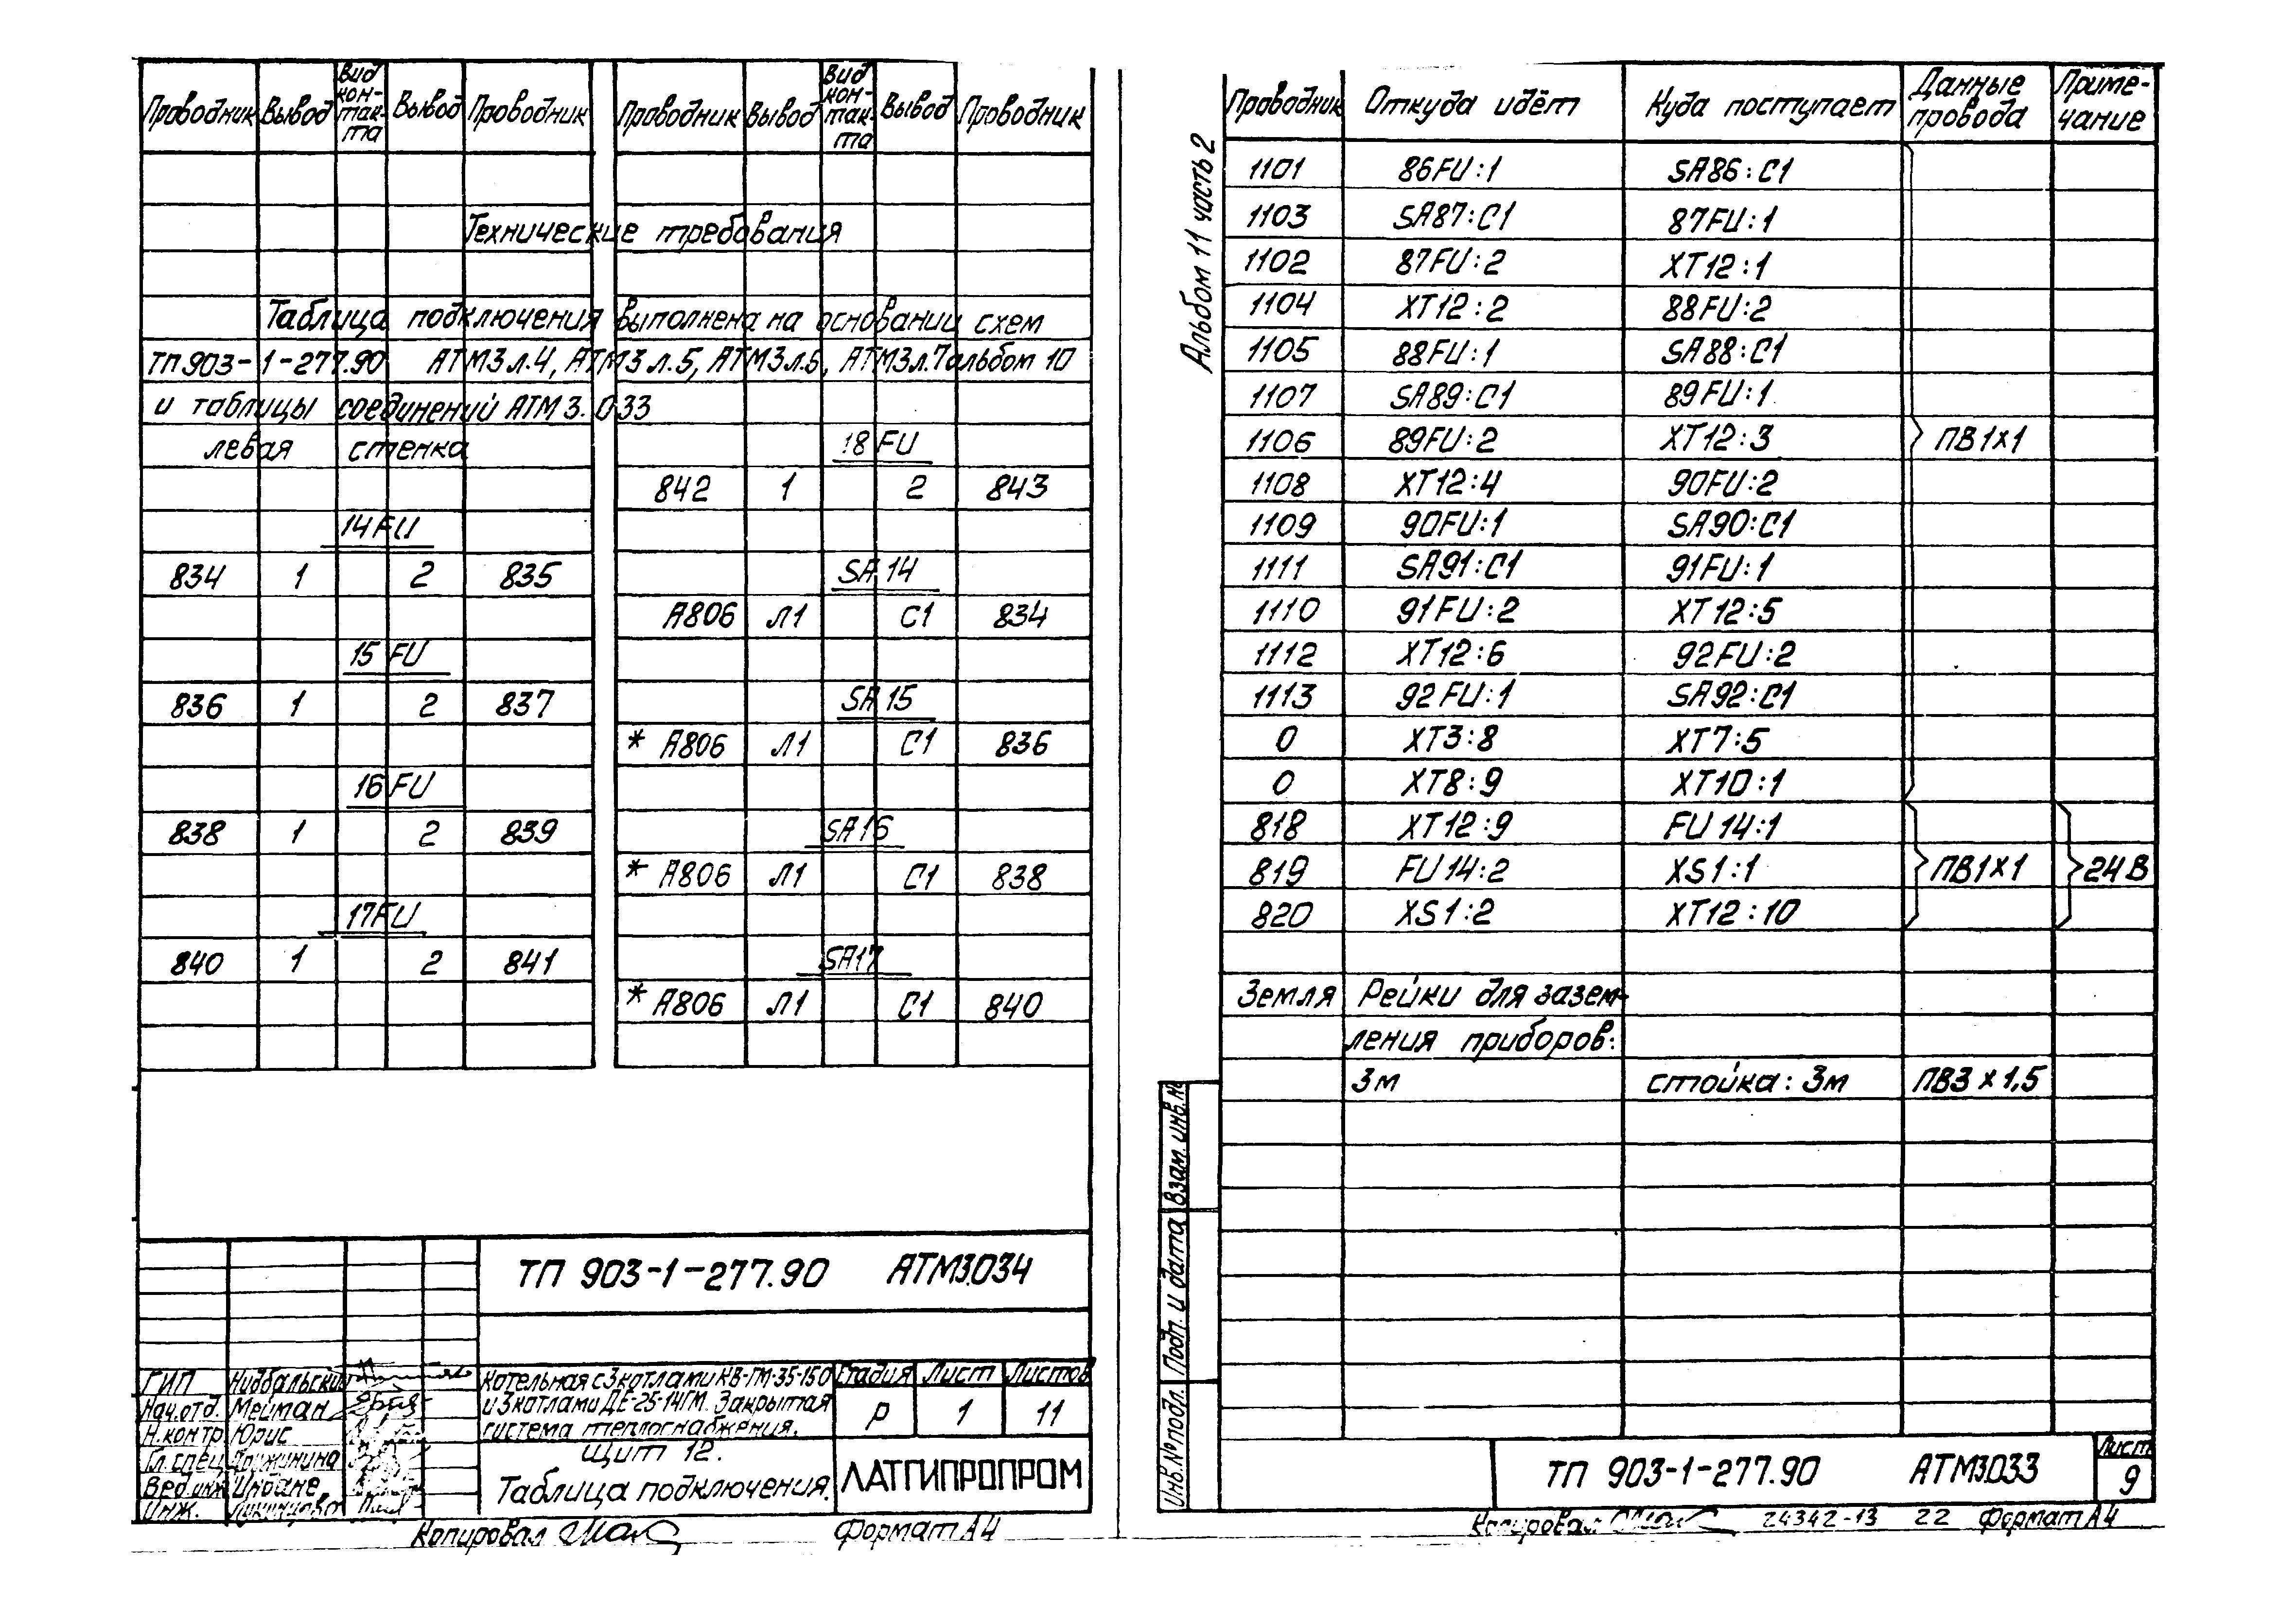 Проводник Вывод Вид кон-так-та Вывод Проводник
Технические требования
Таблица подключения выполнена на основании схем
ТП 903-1-277.90 АТМ3 л.4, АТМ3 л.5, АТМ3 л.6, АТМ3 л.7 альбом 10
и таблицы соединений АТМ3.033
левая стенка
14FU
834 1 2 835
15FU
836 1 2 837
16FU
838 1 2 839
17FU
840 1 2 841
Проводник Вывод Вид кон-так-та Вывод Проводник
18FU
842 1 2 843
SA14
А806 Л1 С1 834
SA15
* А806 Л1 С1 836
SA16
* А806 Л1 С1 838
SA17
* А806 Л1 С1 840
ТП 903-1-277.90 АТМ3.034
ГИП
Нач.отд. Мейман
Н.контр Юрис
Гл.спец Дружинина
Вед.инж
Инж.
Котельная с 3 котлами КВ-ГМ-35-150
и 3 котлами ДЕ-25-14ГМ. Закрытая
система теплоснабжения.
Щит 12.
Таблица подключения.
Стадия Лист Листов
Р 1 11
ЛАТГИПРОПРОМ
Копировал
Формат А4
Альбом 11 часть 2
Проводник Откуда идёт Куда поступает Данные провода Приме-чание
1101 86FU:1 SA86:C1
1103 SA87:C1 87FU:1
1102 87FU:2 XT12:1
1104 XT12:2 88FU:2
1105 88FU:1 SA88:C1
1107 SA89:C1 89FU:1
1106 89FU:2 XT12:3 ПВ1х1
1108 XT12:4 90FU:2
1109 90FU:1 SA90:C1
1111 SA91:C1 91FU:1
1110 91FU:2 XT12:5
1112 XT12:6 92FU:2
1113 92FU:1 SA92:C1
0 XT3:8 XT7:5
0 XT8:9 XT10:1
818 XT12:9 FU14:1
819 FU14:2 XS1:1 ПВ1х1 24В
820 XS1:2 XT12:10
Земля Рейки для зазем-
ления приборов:
3м стойка: 3м ПВ3 х 1,5
Взам. инв.№
Подп. и дата
Инв.№ подл.
ТП 903-1-277.90 АТМ3.033
Лист
9
Копировал
24342-13 22 Формат А4